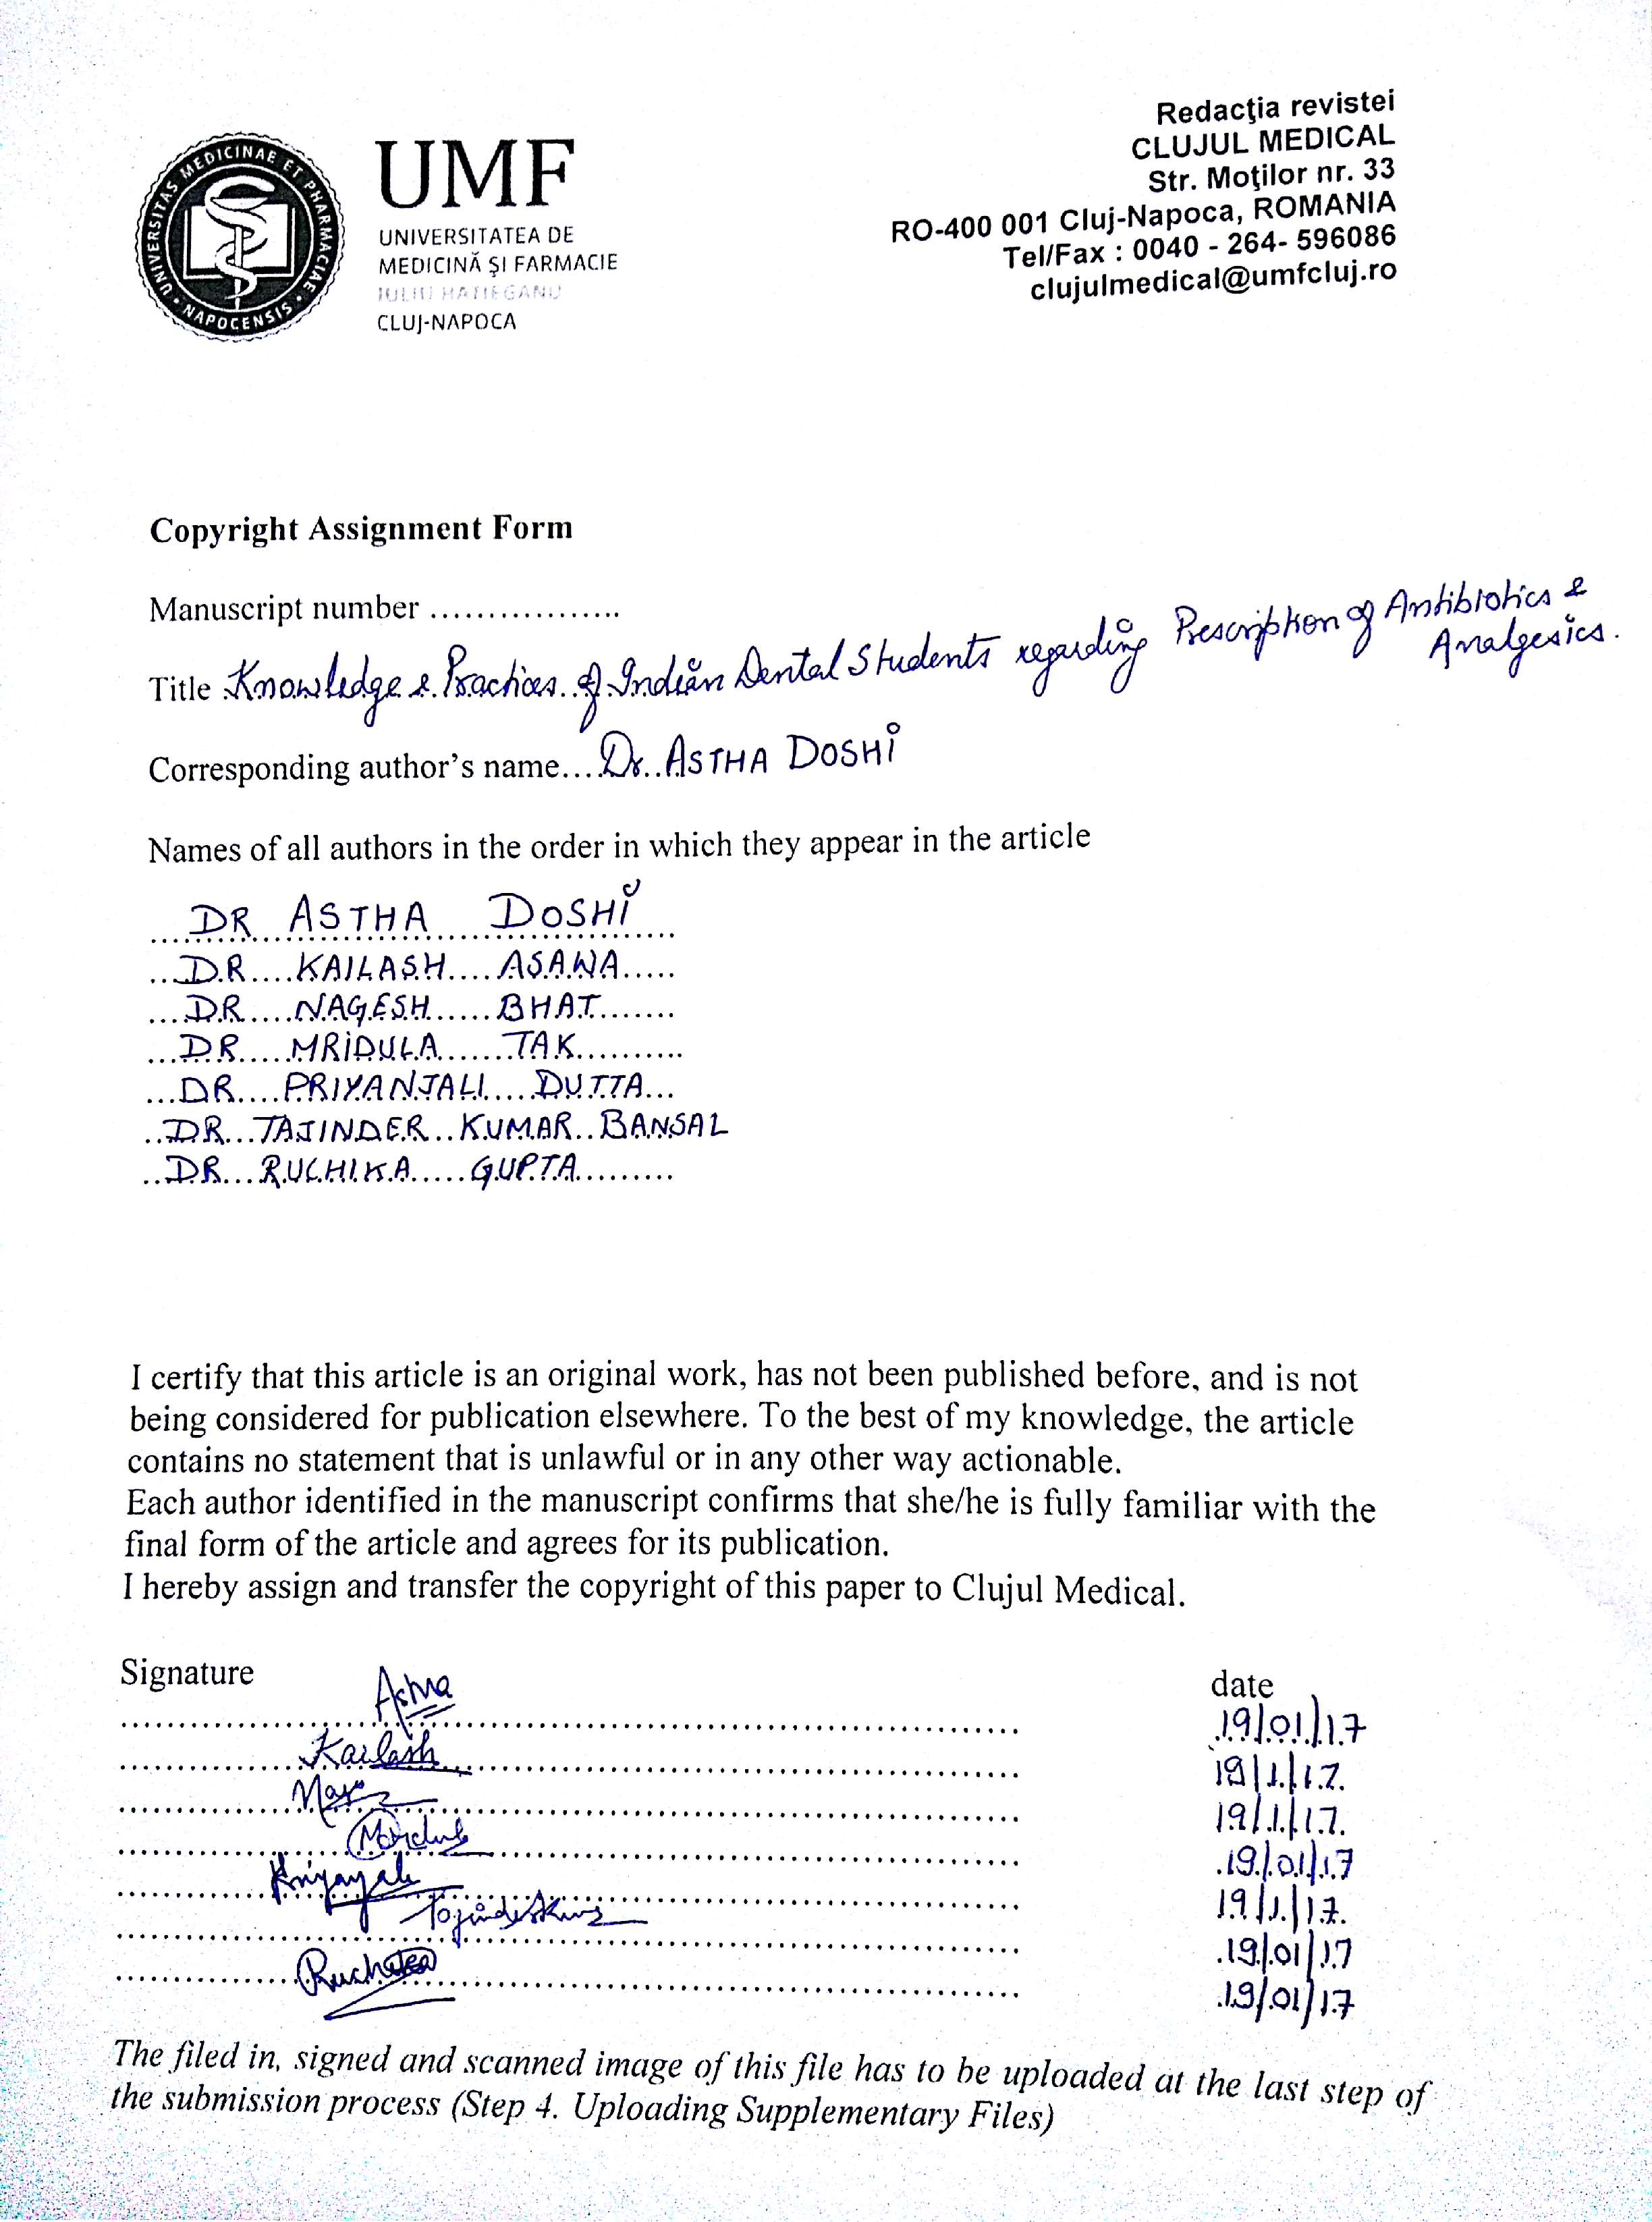 UNIVERSITAS MEDICINAE ET PHARMACIAE NAPOCENSIS
UMF
UNIVERSITATEA DE
MEDICINĂ ȘI FARMACIE
IULIU HAȚIEGANU
CLUJ-NAPOCA
Redacţia revistei
CLUJUL MEDICAL
Str. Moţilor nr. 33
RO-400 001 Cluj-Napoca, ROMANIA
Tel/Fax : 0040 - 264- 596086
clujulmedical@umfcluj.ro
Copyright Assignment Form
Manuscript number .................
Title Knowledge & Practices of Indian Dental Students regarding Prescription of Antibiotics &
Analgesics.
Corresponding author's name....Dr. ASTHA DOSHI
Names of all authors in the order in which they appear in the article
DR ASTHA DOSHI
DR KAILASH ASAWA
DR NAGESH BHAT
DR MRIDULA TAK
DR PRIYANJALI DUTTA
DR TAJINDER KUMAR BANSAL
DR RUCHIKA GUPTA
I certify that this article is an original work, has not been published before, and is not
being considered for publication elsewhere. To the best of my knowledge, the article
contains no statement that is unlawful or in any other way actionable.
Each author identified in the manuscript confirms that she/he is fully familiar with the
final form of the article and agrees for its publication.
I hereby assign and transfer the copyright of this paper to Clujul Medical.
Signature date
Astha 19/01/17
Kailash 19/1/17.
19/1/17.
19/01/17
19/1/17.
19/01/17
19/01/17
The filed in, signed and scanned image of this file has to be uploaded at the last step of
the submission process (Step 4. Uploading Supplementary Files)